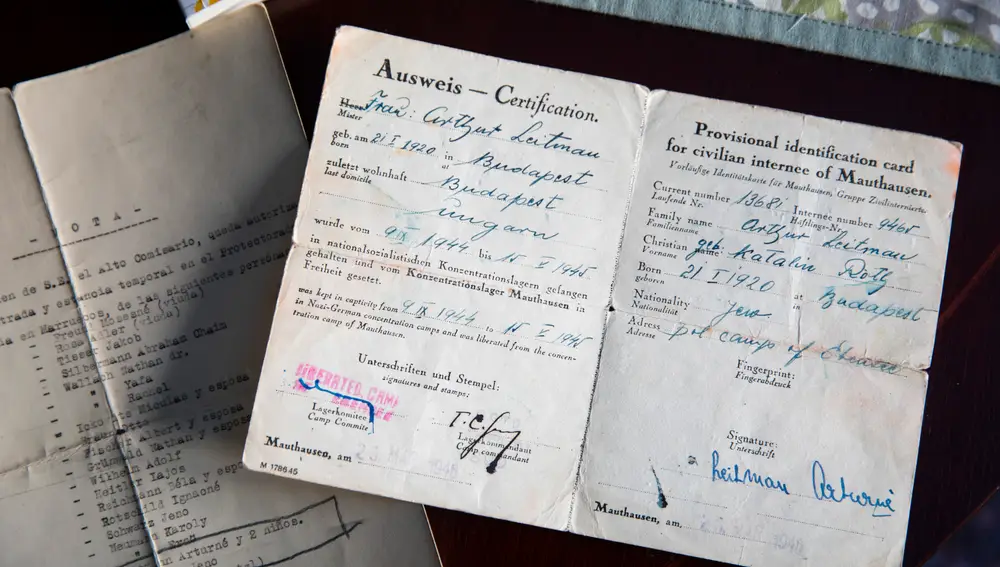 - O T A L -
en de S.E. el Alto Comisario, queda autoriza
trada y estancia temporal en el Protectorad
en Marruecos, de las siguientes person
- Freud Mosesné (viuda)
- Rosa Bier (viuda)
- Riesel Jakob
- Silbermann Abrabas Chaim
- Wallach Nathan dr.
- " Yafa
- " Rachel
- Icko Miculas y esposa
- Albert y esposa
- Grünfeld Nathan y esposa
- Wilhelm Adolf
- Heitler Lajos
- Reichmann Béla y esposa
- Rotschild Ignácné
- Schwarz Jeno
- Neumann Karoly
- " Ernő
n Arturné y 2 niños.
Ausweis — Certification.
Herr Frau: Arthur Leitman
Mister
geb. am 21 I 1920 in Budapest
born at
zuletzt wohnhaft Budapest
last domicile
Ungarn
wurde vom 9 IX 1944 bis 15 V 1945
in nationalsozialistischen Konzentrationslagern gefangen
gehalten und vom Konzentrationslager Mauthausen in
Freiheit gesetzt.
was kept in captivity from 9 IX 1944 to 15 V 1945
in Nazi-German concentration camps and was liberated from the concen-
tration camp of Mauthausen.
Unterschriften und Stempel:
signatures and stamps:
LIBERATED CAMP
Lagerkomitee
Camp Committe
Lagerkommandant
Camp commandant
Mauthausen, am
M 178645
Provisional identification card
for civilian internee of Mauthausen.
Vorläufige Identitätskarte für Mauthausen, Gruppe Zivilinternierte.
Current number 13681 Internee number 9465
Laufende Nr. Häftlings-Nr.
Family name Arthur Leitman
Familienname
Christian name geb. Katalin Roth
Vorname
Born 21 I 1920 at Budapest
geboren in
Nationality Jew
Nationalität
Adress camp of
Adresse
Fingerprint:
Fingerabdruck
Signature:
Unterschrift
Leitman Arturné
Mauthausen, am.